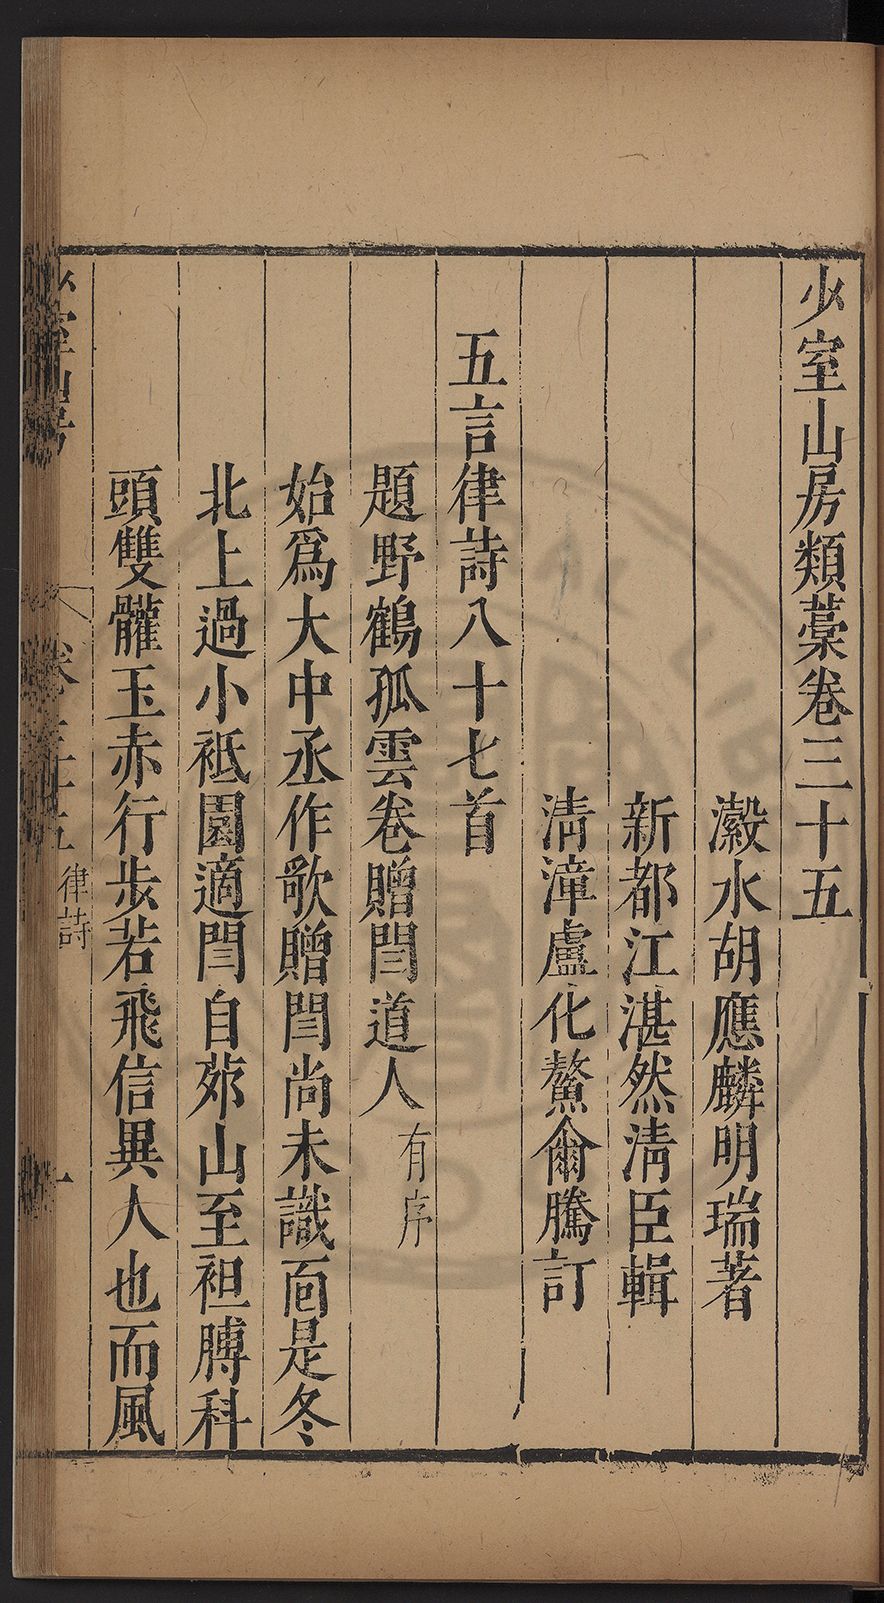 少室山房類藁卷三十五
瀫水胡應麟明瑞著
新都江湛然清臣輯
清漳盧化鰲爾騰訂
五言律詩八十七首
題野鶴孤雲卷贈閆道人有序
始爲大中丞作歌贈閆尚未識面是冬
北上過小祗園適閆自茆山至袒膊科
頭雙髽玉赤行步若飛信異人也而風
少室山房
卷三十五
律詩
一